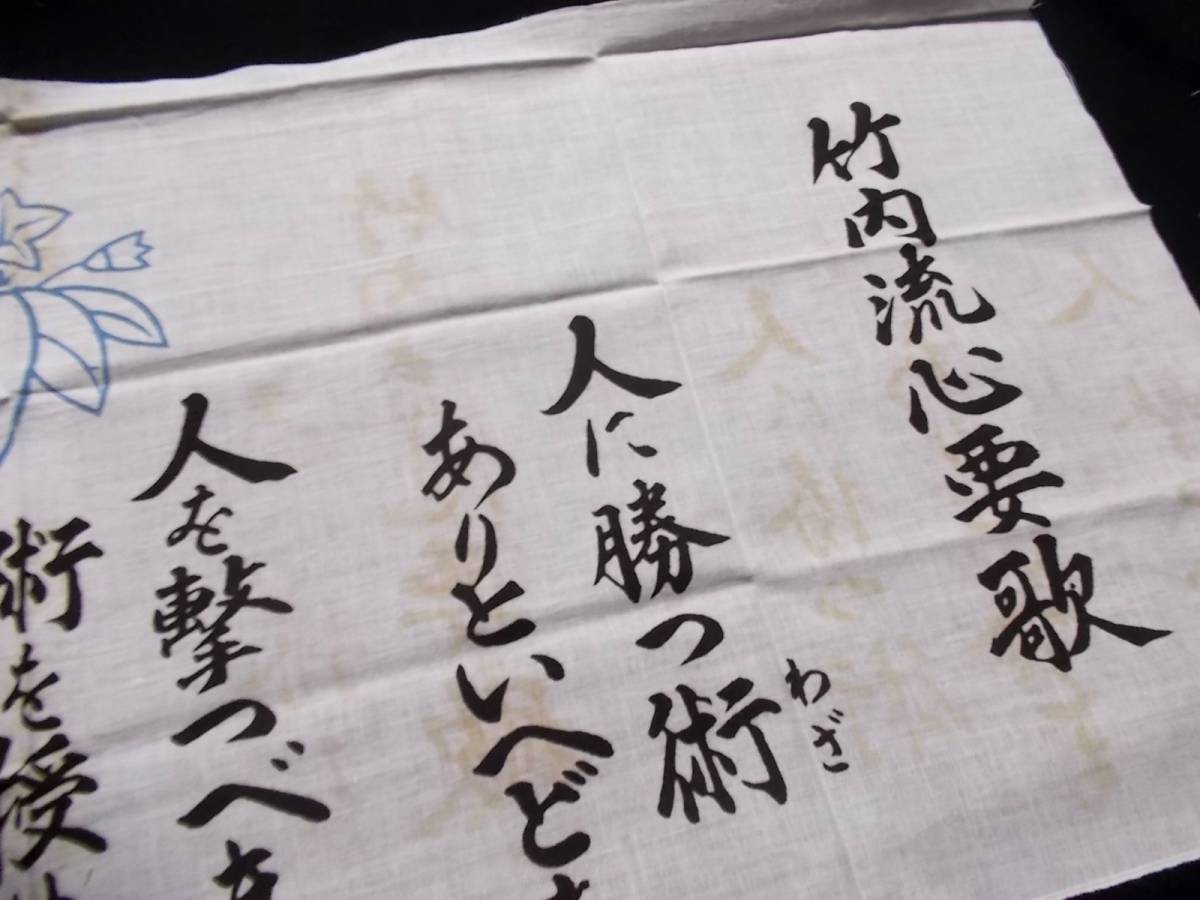 竹内流心要歌
人に勝つ術
わざ
ありといへど
人を撃つべき
術を授